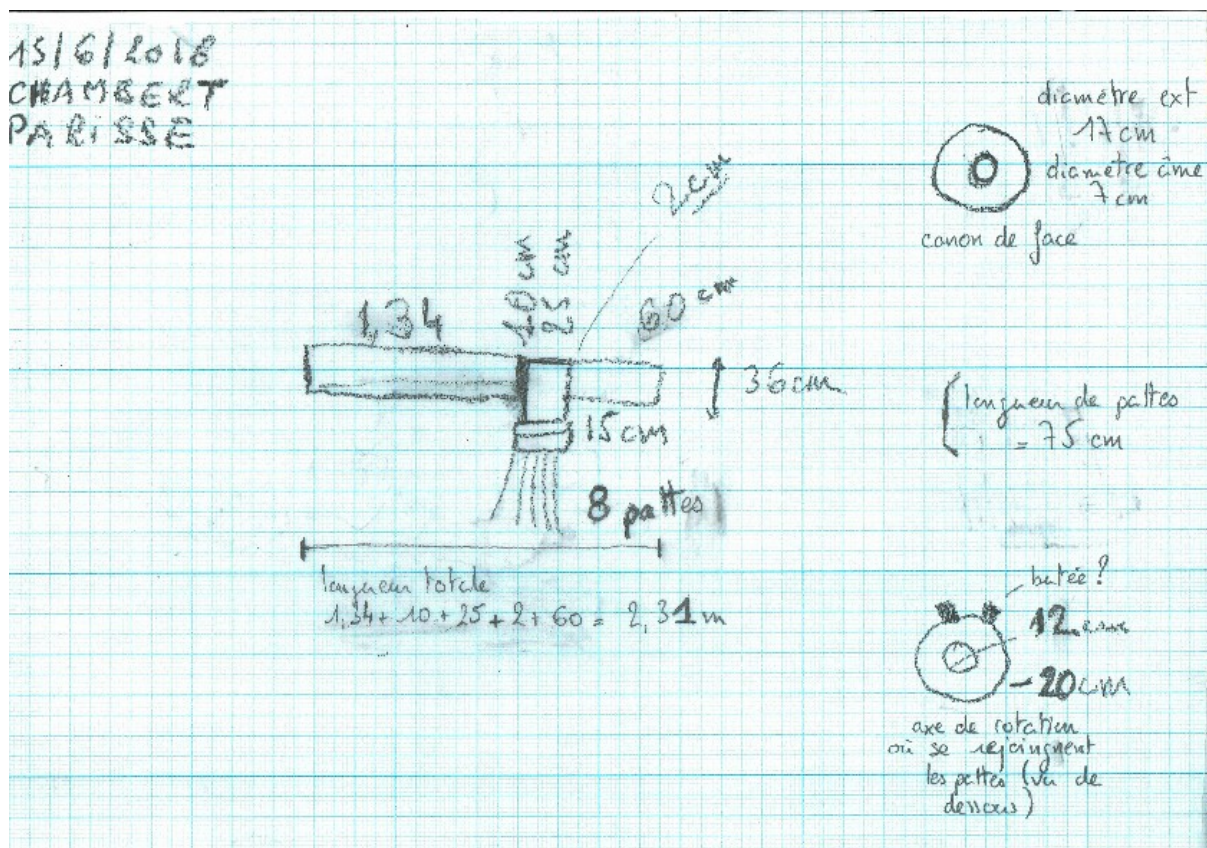 15/6/2018
CHAMBERT
PARISSE
diamètre ext
17 cm
diamètre âme
7 cm
canon de face
2cm
10 cm
25 cm
1,34
60 cm
36cm
15cm
8 pattes
longueur de pattes
= 75 cm
longueur totale
1,34 + 10 + 25 + 2 + 60 = 2,31 m
butée ?
12cm
20cm
axe de rotation
où se rejoingnent
les pattes (vu de
dessous)